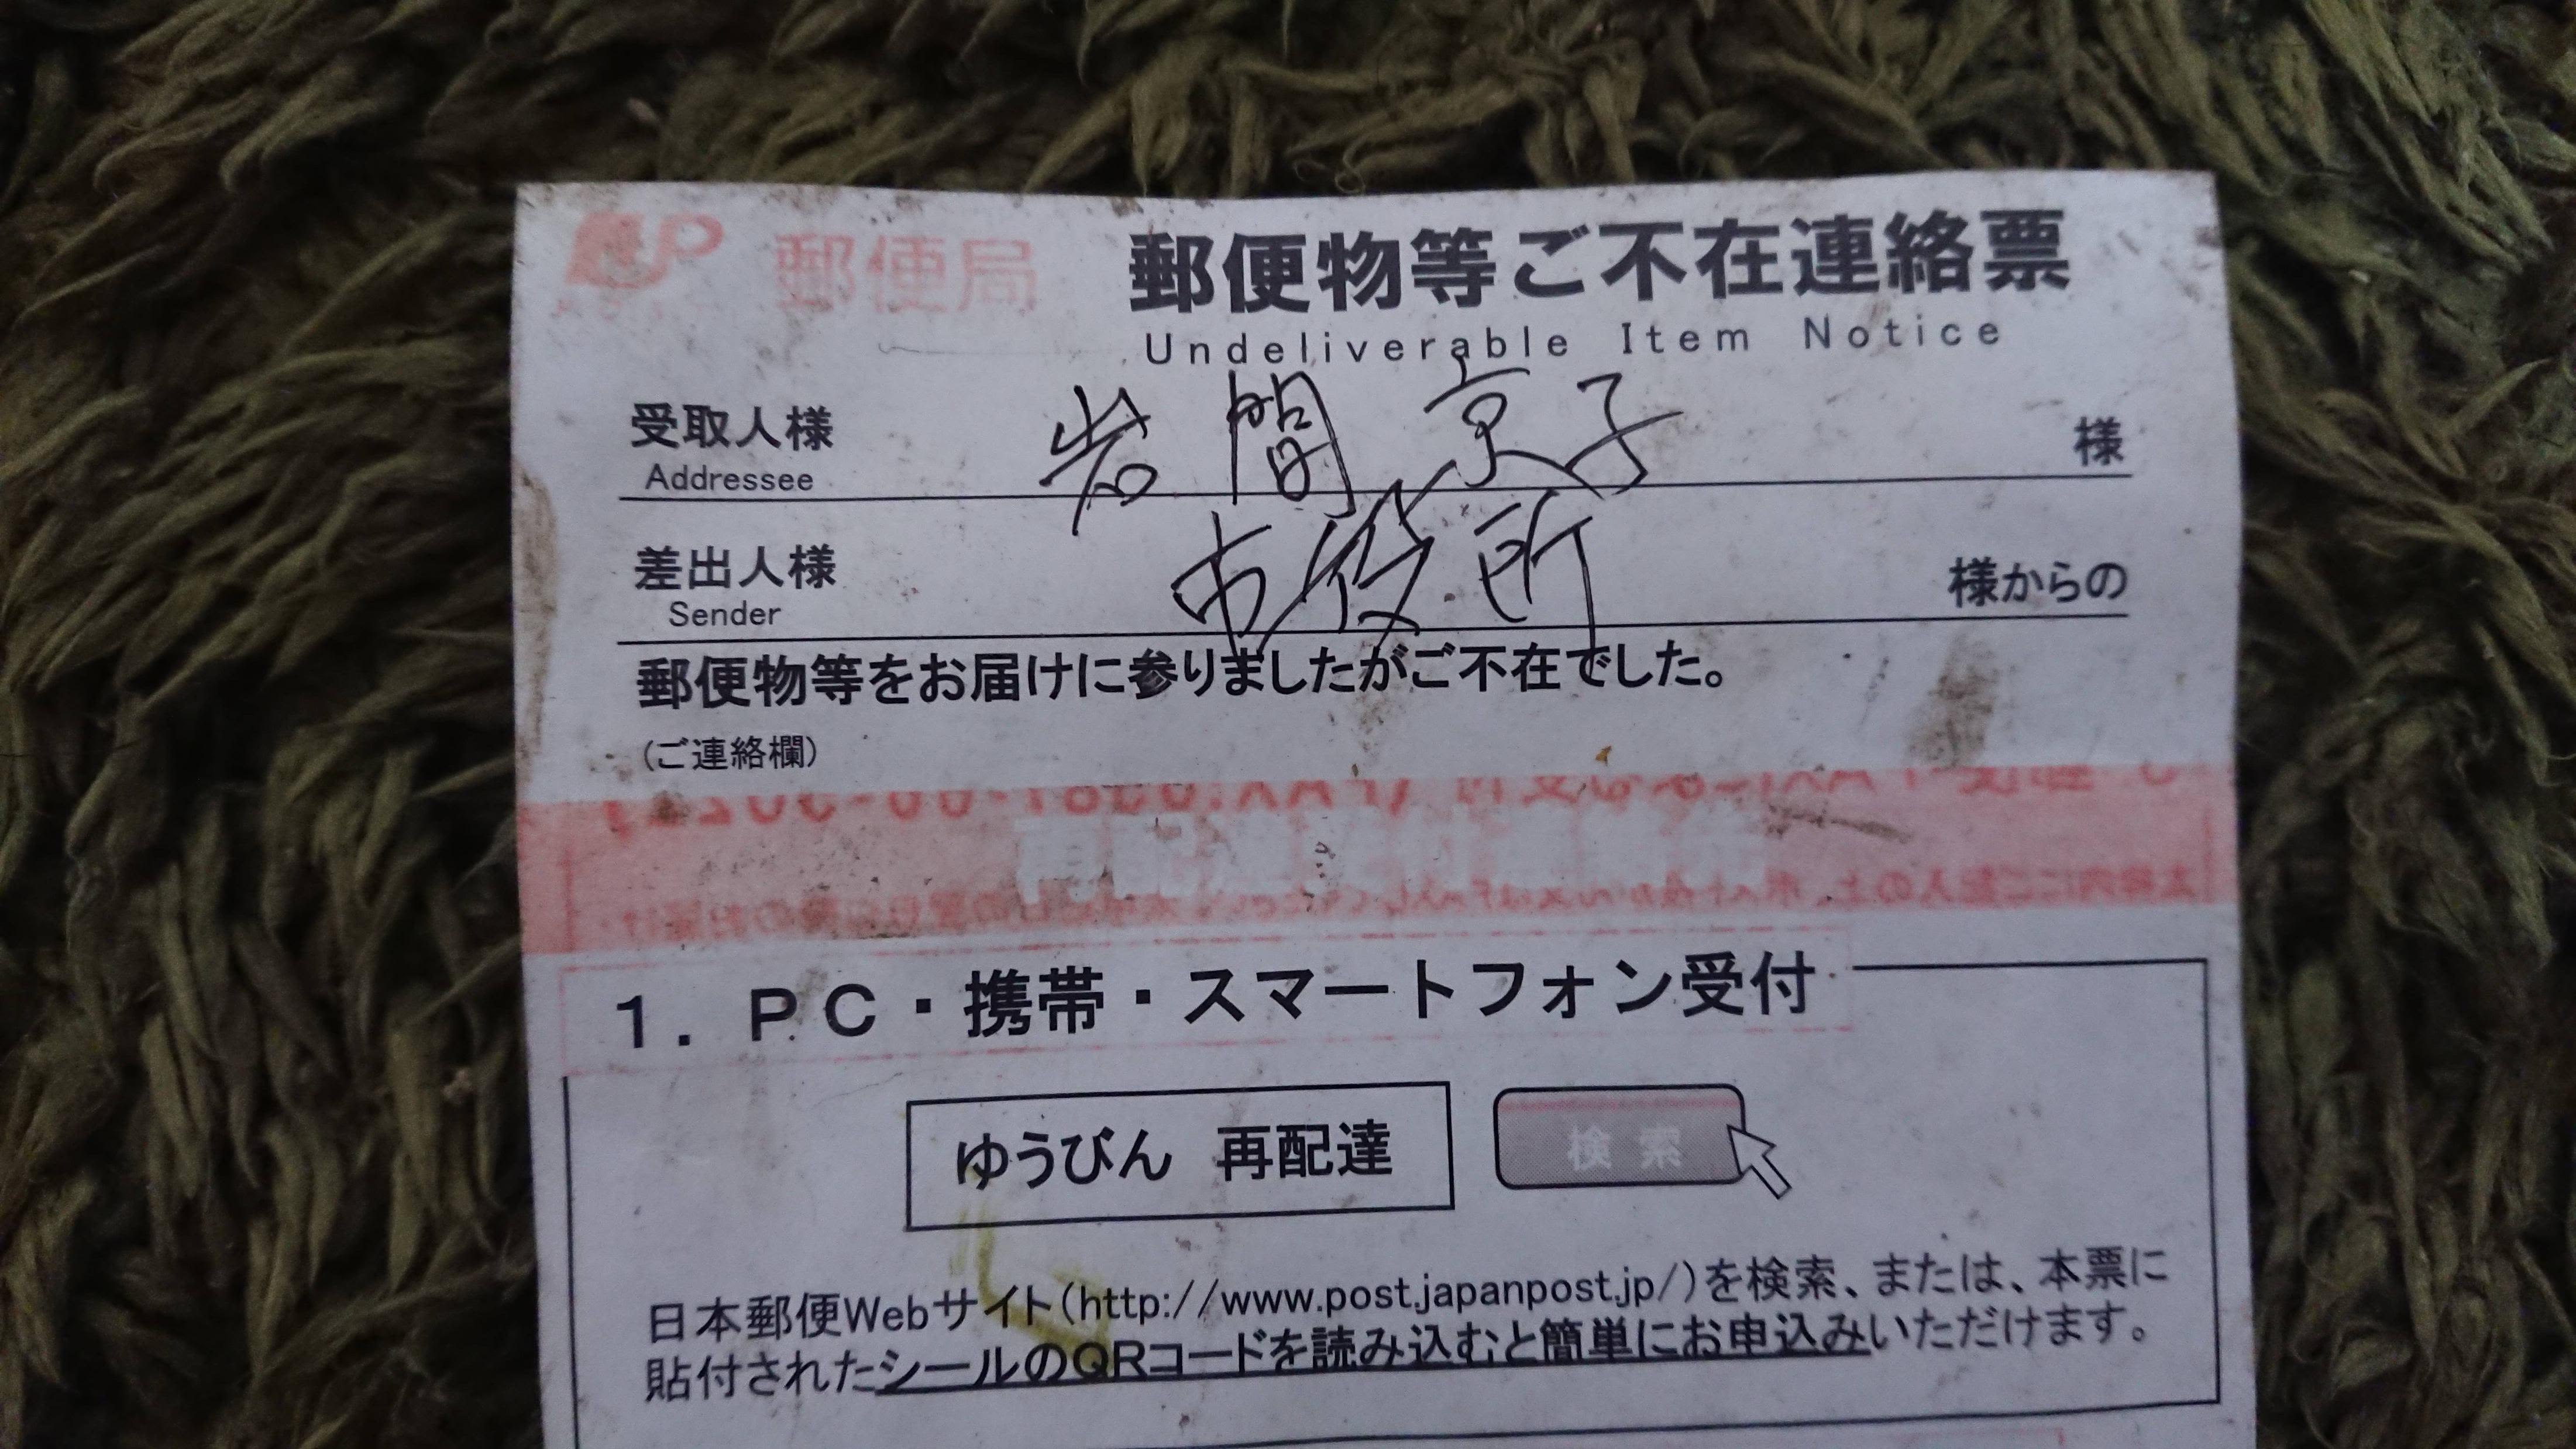 JP 郵便局 郵便物等ご不在連絡票
Undeliverable Item Notice
受取人様 岩間京子 様
Addressee
差出人様 市役所 様からの
Sender
郵便物等をお届けに参りましたがご不在でした。
(ご連絡欄)
1. PC・携帯・スマートフォン受付
ゆうびん 再配達 検索
日本郵便Webサイト(http://www.post.japanpost.jp/)を検索、または、本票に
貼付されたシールのQRコードを読み込むと簡単にお申込みいただけます。